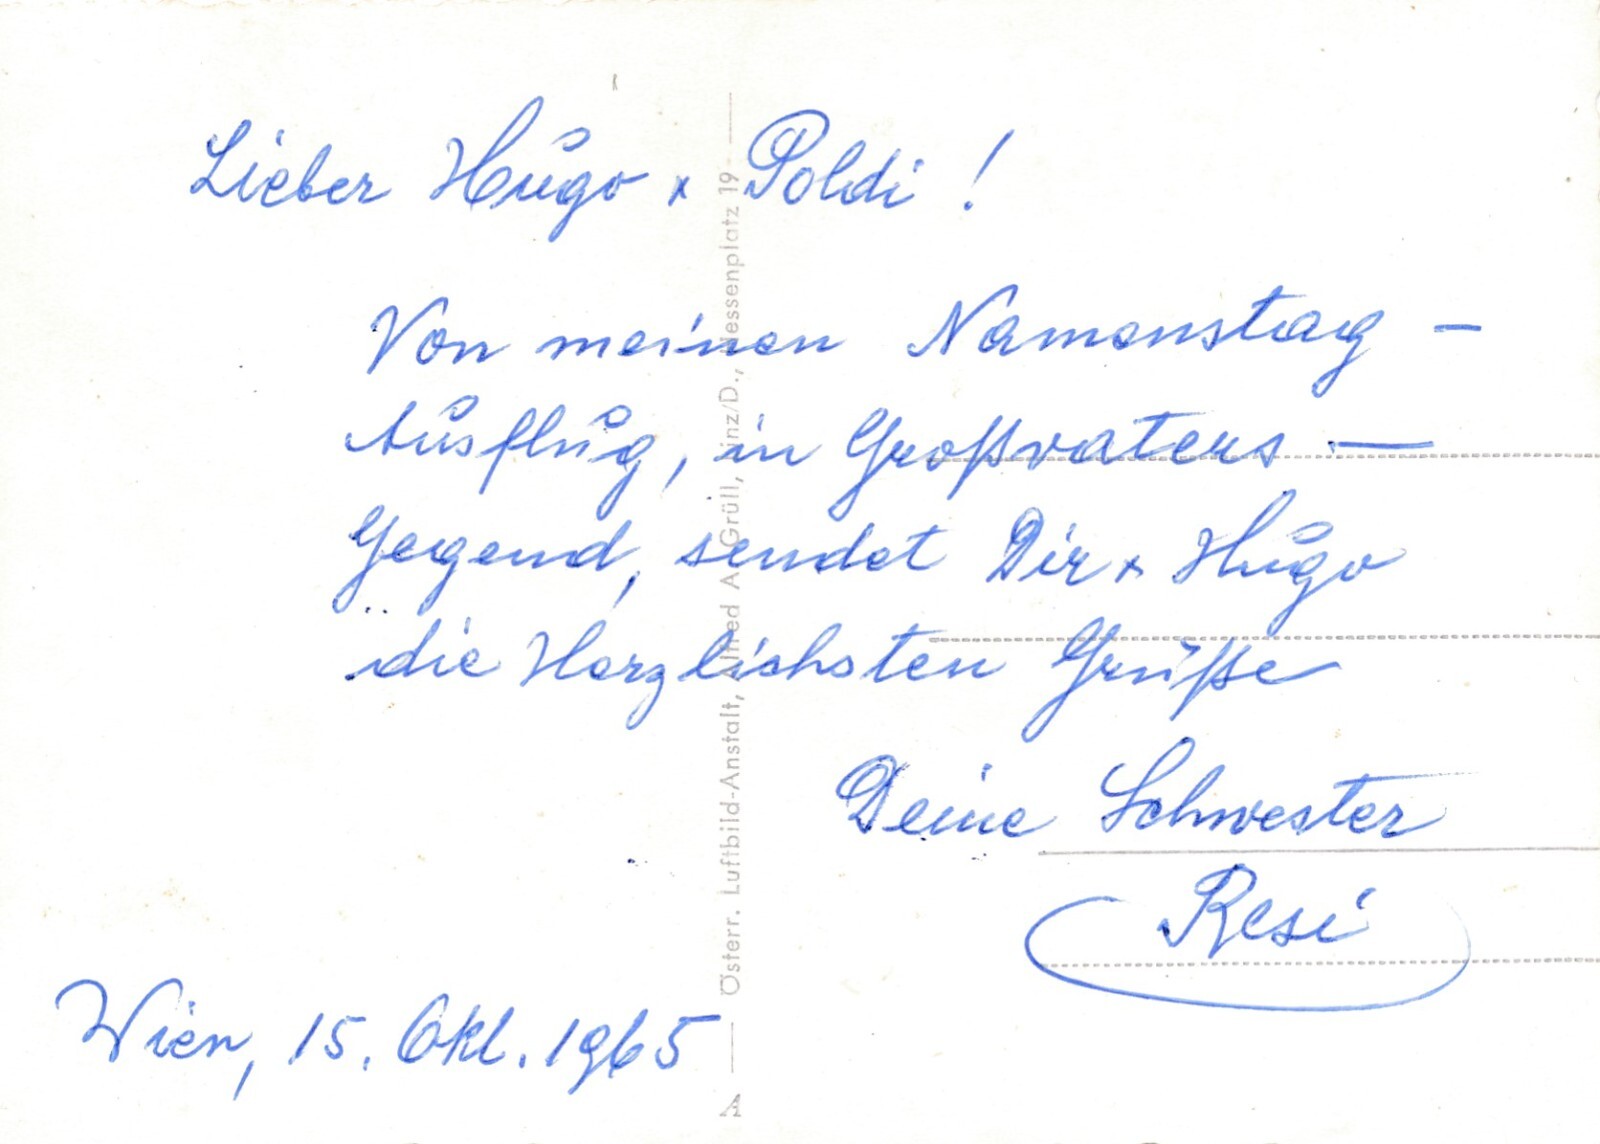 Lieber Hugo x Poldi !
Von meinen Namenstag –
Ausflug, in Großvaters –
Gegend, sendet Dir x Hugo
die Herzlichsten Grüße
Deine Schwester
Resi
Wien, 15. Okt. 1965
Österr. Luftbild-Anstalt, Alfred A. Grüll, Linz/D., Hessenplatz 19
A